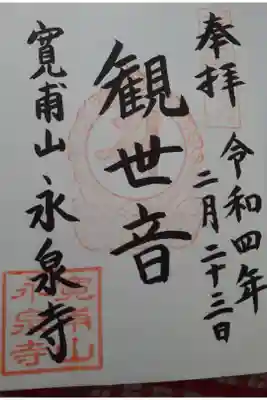 奉拝
令和四年
二月二十三日
観世音
寛甫山永泉寺
寛甫山
永泉寺